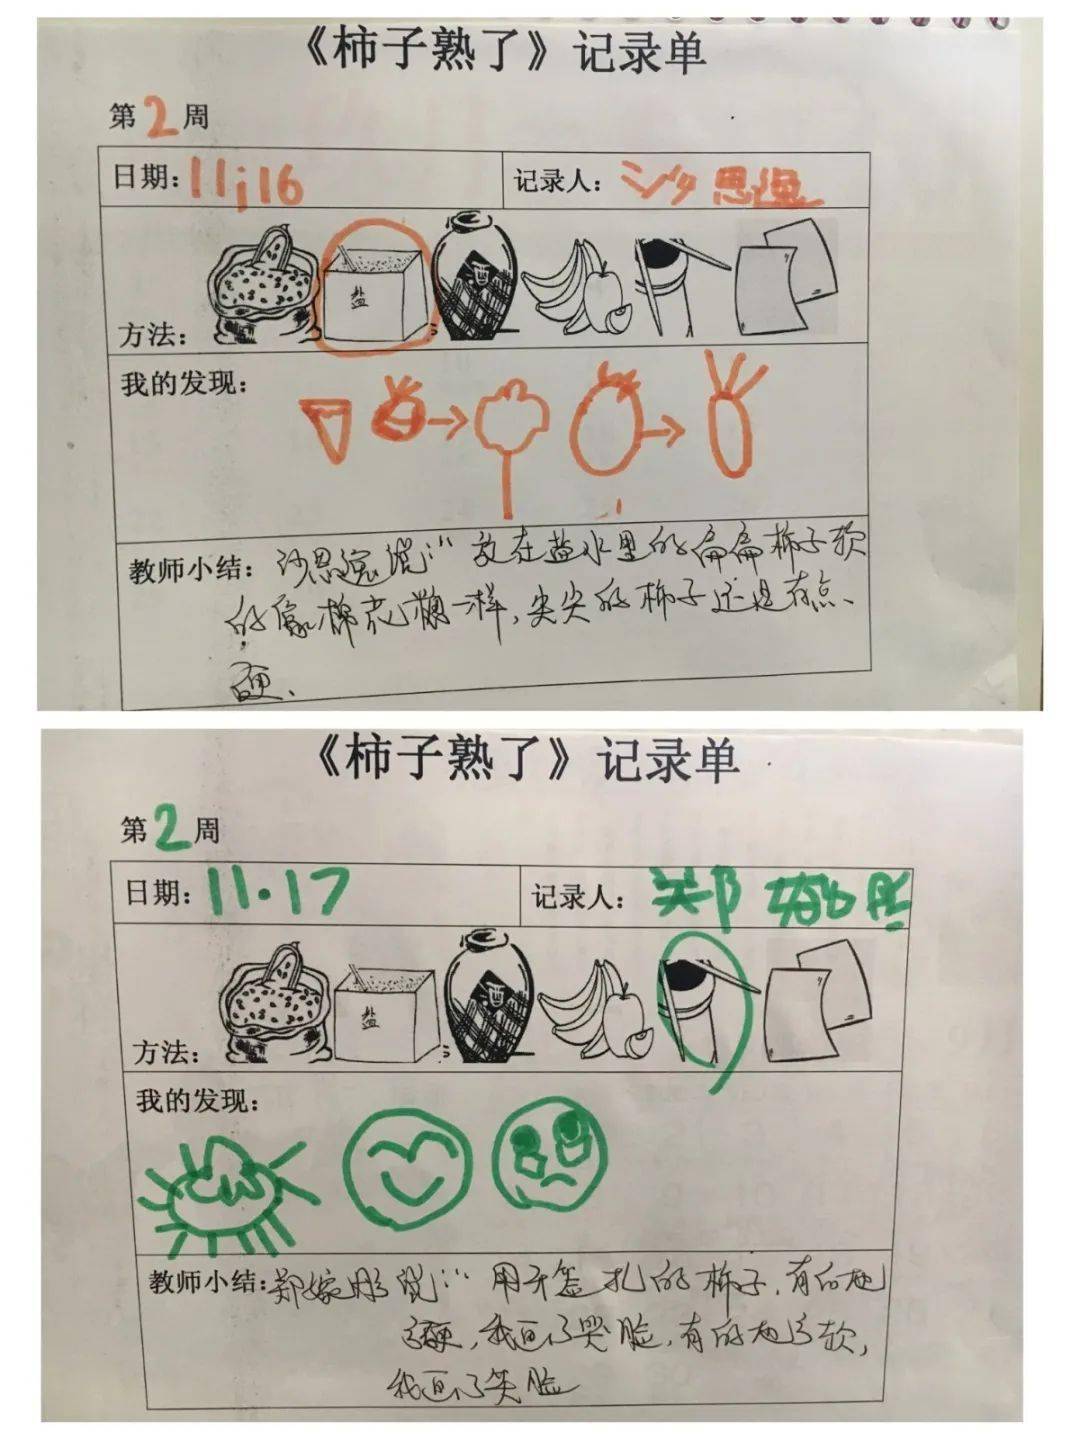 《柿子熟了》记录单
第2周
日期：11;16
记录人：沙思
盐
酒
方法：
我的发现：
教师小结：沙思说：“放在盐水里的扁扁柿子软
的像棉花糖一样，尖尖的柿子还是有点
硬、
《柿子熟了》记录单
第2周
日期：11.17
记录人：郑
盐
酒
方法：
我的发现：
教师小结：郑嫁彤说：“用牙签扎的柿子，有的地
方硬，我画了哭脸，有的地方软，
我画了笑脸